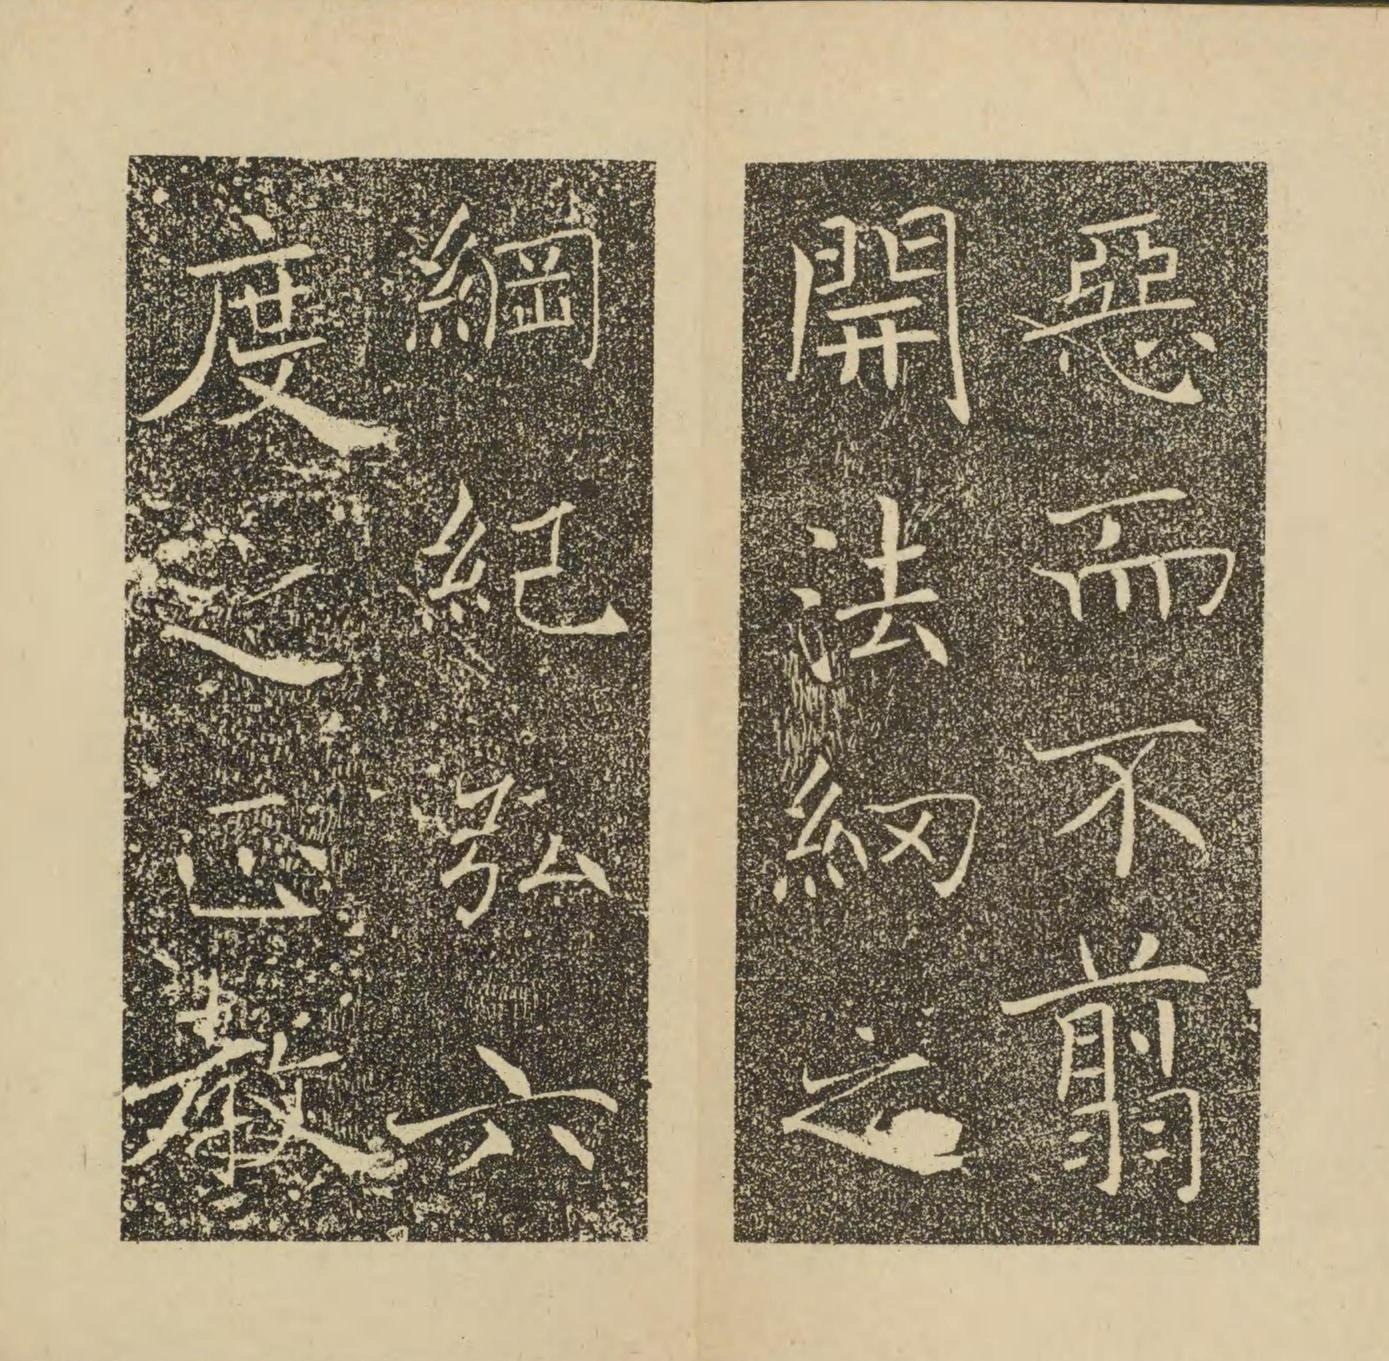 惡而不翦
開法網之
綱紀弘六
度之正教